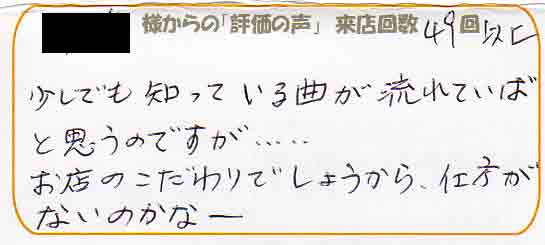 様からの「評価の声」 来店回数 49回以上
少しでも知っている曲が流れていば
と思うのですが……
お店のこだわりでしょうから、仕方が
ないのかなー